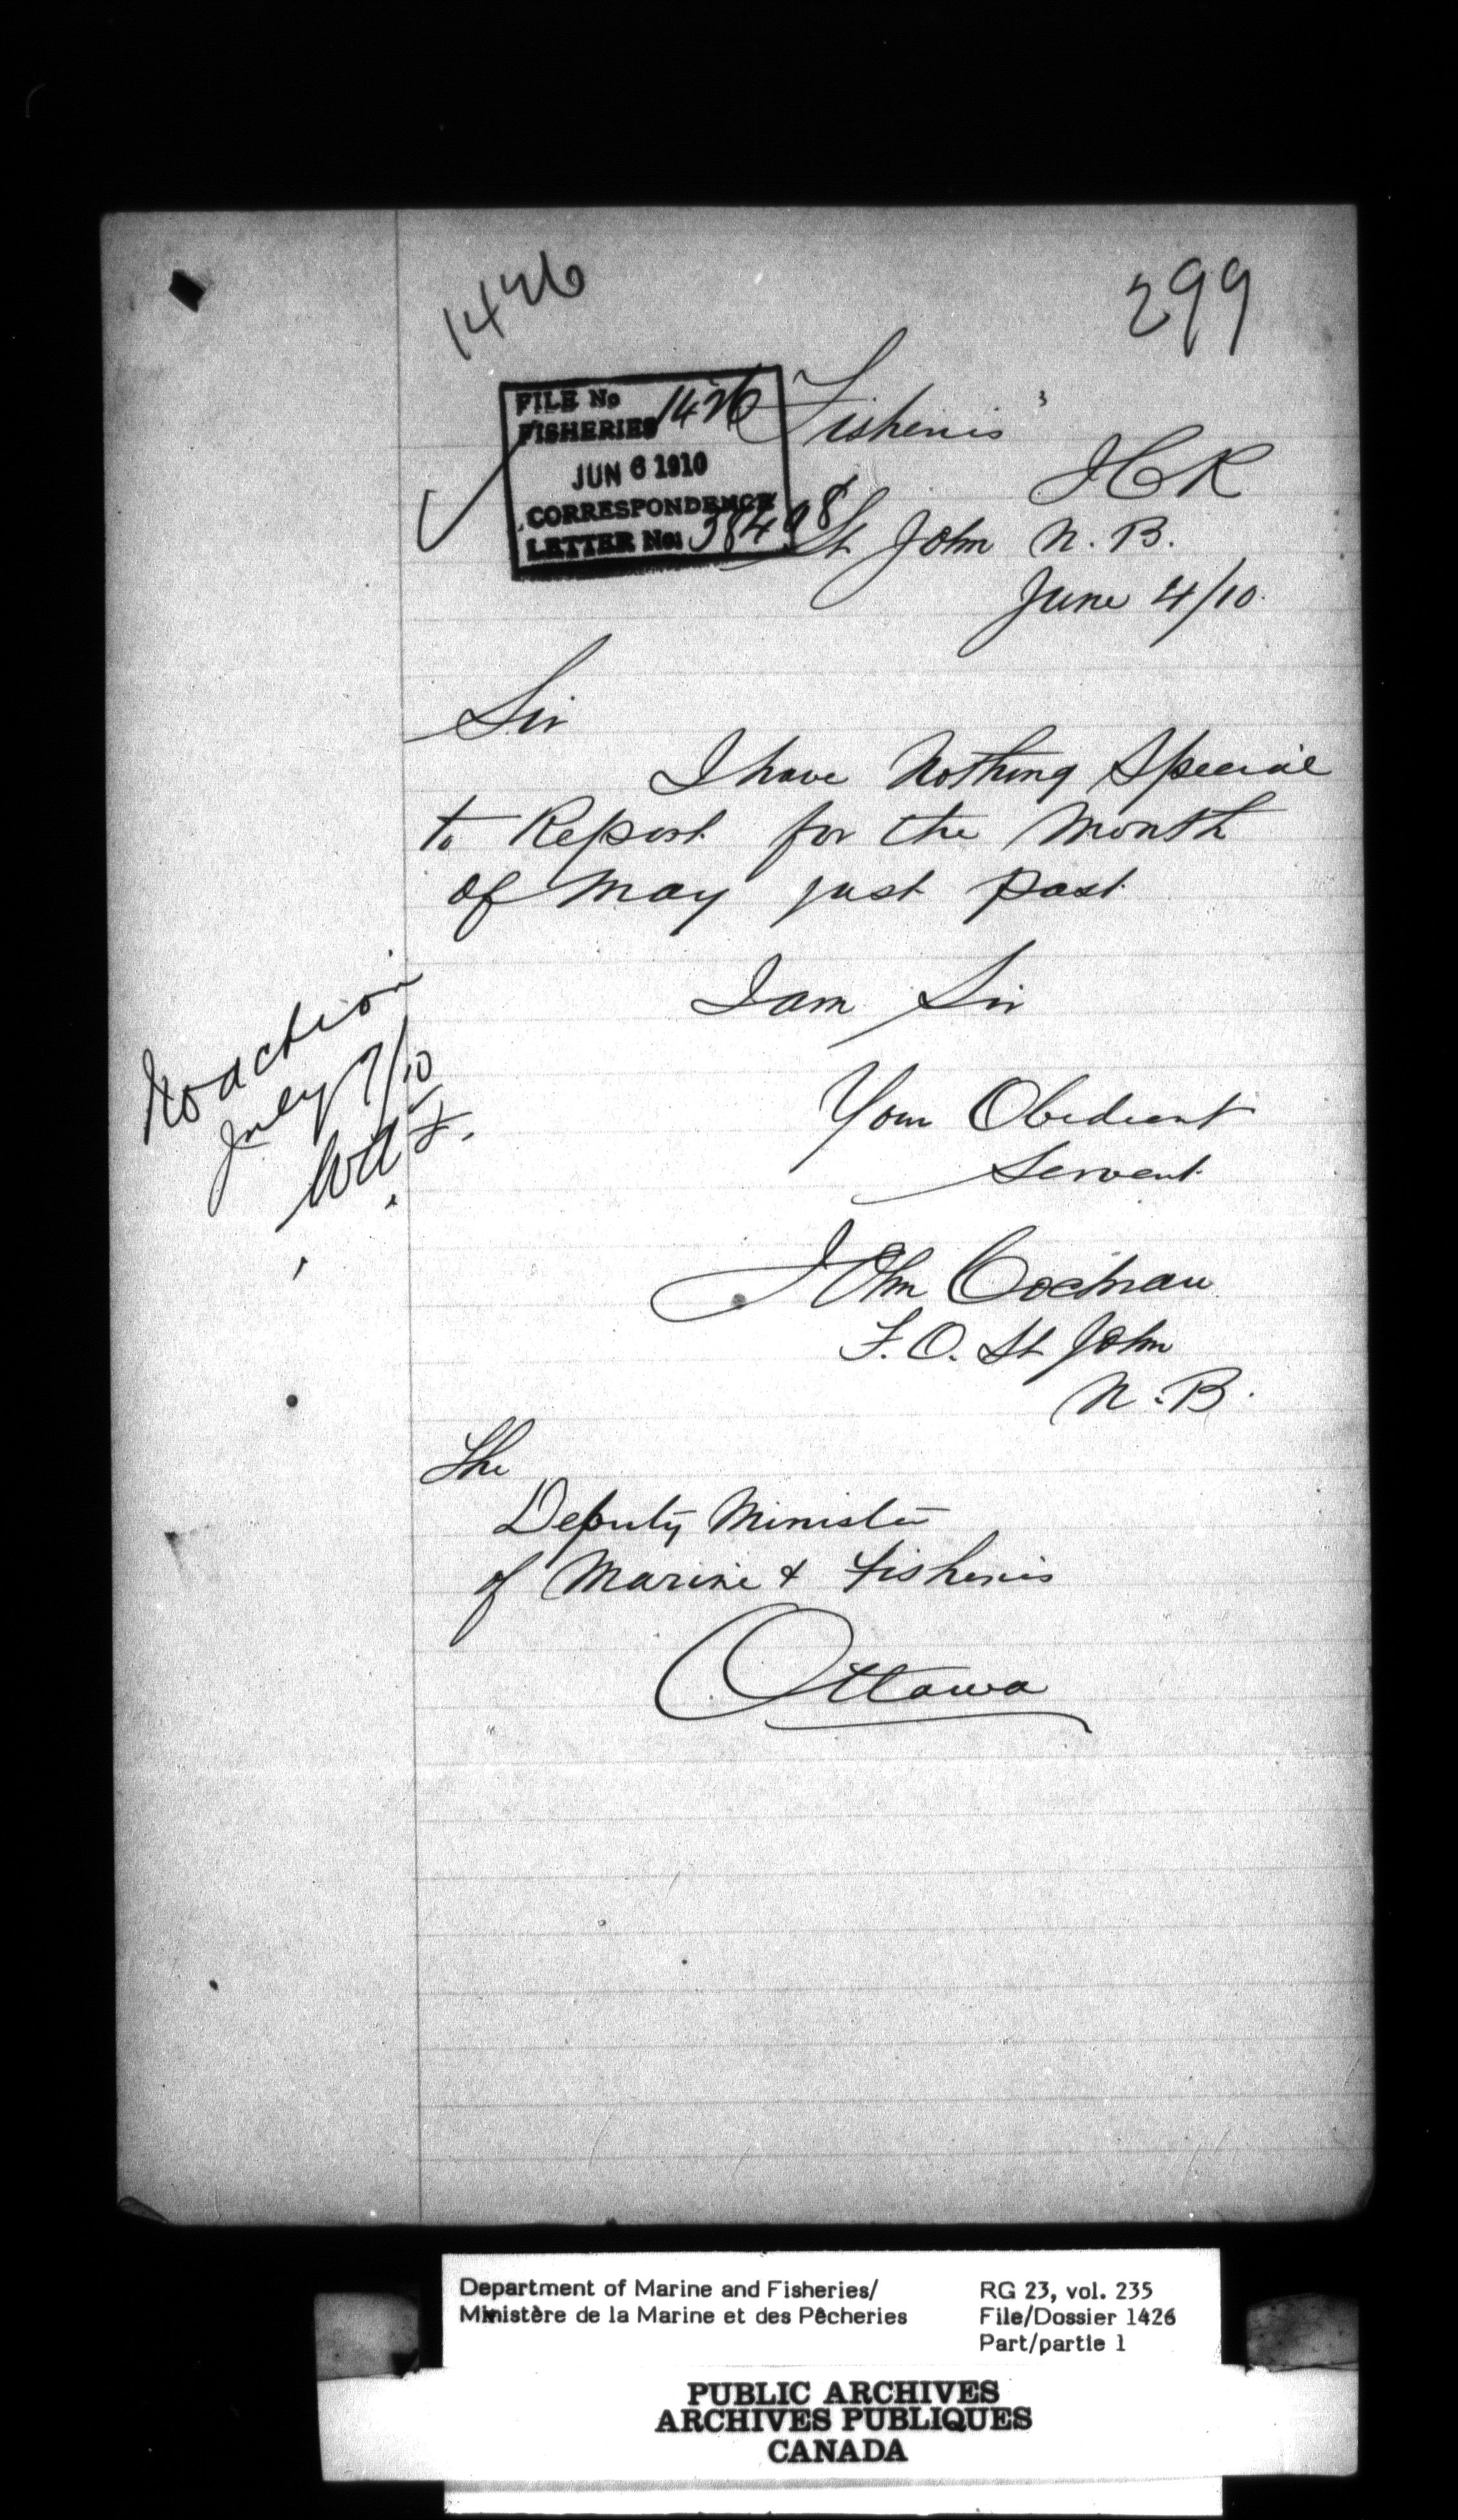 1426
299
FILE No
FISHERIES 1426
JUN 6 1910
CORRESPONDENCE
LETTER No: 38498
Fisheries
St John N.B.
June 4/10.
Sir
I have Nothing Special
to Report for the Month
of May just past
I am Sir
Your Obedient
Servent
John Cochran
F.O. St John
N.B.
No action
July 7/10
The
Deputy Minister
of Marine & Fisheries
Ottawa
Department of Marine and Fisheries/
Ministère de la Marine et des Pêcheries
RG 23, vol. 235
File/Dossier 1426
Part/partie 1
PUBLIC ARCHIVES
ARCHIVES PUBLIQUES
CANADA